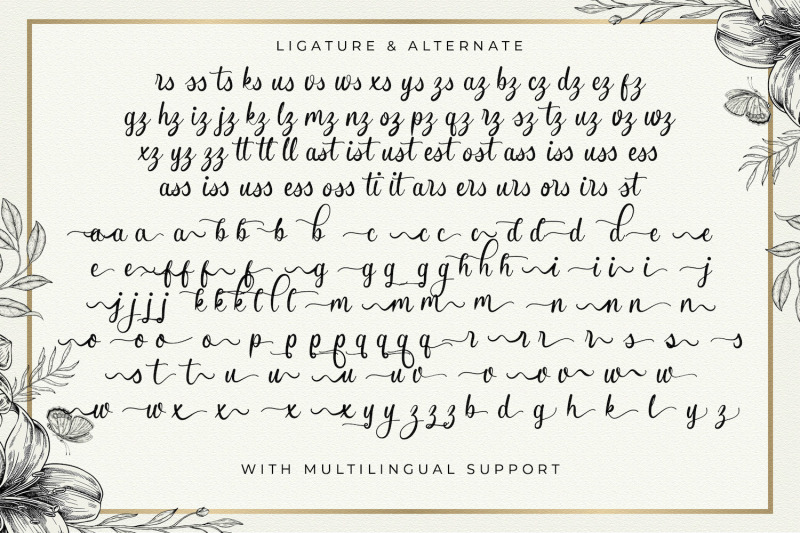 LIGATURE & ALTERNATE
rs ss ts ks us os ws xs ys zs az bz cz dz ez fz
gz hz iz jz kz lz mz nz oz pz qz rz sz tz uz vz wz
xz yz zz tt tl ll ast ist ust est ost ass iss uss ess
ass iss uss ess oss ti it ars ers urs ors irs st
a a a a b b b b c c c c d d d d e e
e e f f f f g g g g g h h h h i i i i j
j j j j k k k l l l m m m m n n n n
o o o o p p p p q q q q r r r r s s s
s t t u u u u v o v v w w
w w x x x x y y z z z b d g h k l y z
WITH MULTILINGUAL SUPPORT